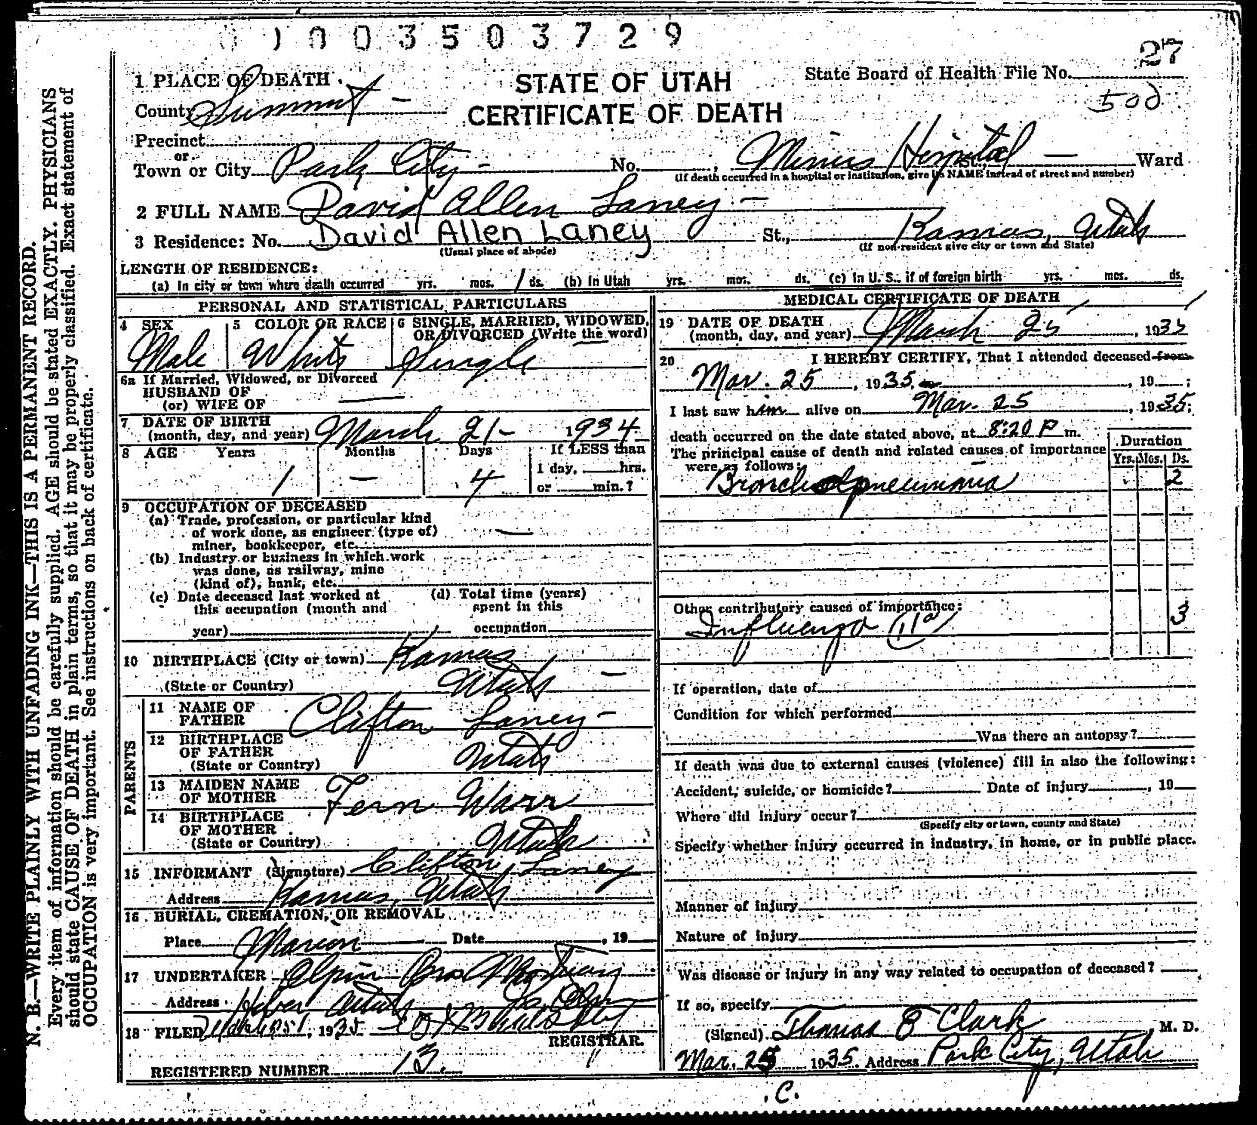 1003503729
27
1 PLACE OF DEATH
STATE OF UTAH
State Board of Health File No.
County Summit —
CERTIFICATE OF DEATH
500
Precinct
or
Town or City Park City - No. , Miners Hospital St., — Ward
(If death occurred in a hospital or institution, give its NAME instead of street and number)
2 FULL NAME David Allen Laney —
3 Residence: No. David Allen Laney St., Kamas, Utah
(Usual place of abode) (If non-resident give city or town and State)
LENGTH OF RESIDENCE:
(a) In city or town where death occurred yrs. mos. 1 ds. (b) in Utah yrs. mos. ds. (c) in U. S., if of foreign birth yrs. mos. ds.
PERSONAL AND STATISTICAL PARTICULARS
4 SEX 5 COLOR OR RACE 6 SINGLE, MARRIED, WIDOWED,
OR DIVORCED (Write the word)
Male White Single
6a If Married, Widowed, or Divorced
HUSBAND OF
(or) WIFE OF —
7 DATE OF BIRTH
(month, day, and year) March 21- 1934
8 AGE Years Months Days If LESS than
1 day, hrs.
or min.?
1 — 4
9 OCCUPATION OF DECEASED
(a) Trade, profession, or particular kind
of work done, as engineer (type of)
miner, bookkeeper, etc. —
(b) Industry or business in which work
was done, as railway, mine
(kind of), bank, etc.
(c) Date deceased last worked at
this occupation (month and
year)
(d) Total time (years)
spent in this
occupation
10 BIRTHPLACE (City or town) Kamas
(State or Country) Utah —
PARENTS
11 NAME OF
FATHER Clifton Laney -
12 BIRTHPLACE
OF FATHER
(State or Country) Utah
13 MAIDEN NAME
OF MOTHER Fern Warr
14 BIRTHPLACE
OF MOTHER
(State or Country) Utah
15 INFORMANT (Signature) Clifton Laney
Address Kamas, Utah
16 BURIAL, CREMATION, OR REMOVAL
Place Marion Date , 19
17 UNDERTAKER Olpin Bros Mortuary
Address Heber Utah
18 FILED , 1935
REGISTRAR.
REGISTERED NUMBER 13.
MEDICAL CERTIFICATE OF DEATH
19 DATE OF DEATH
(month, day, and year) March 25 , 1935
20 I HEREBY CERTIFY, That I attended deceased from
Mar. 25 , 1935 , 19 ;
I last saw him alive on Mar. 25 , 1935.
death occurred on the date stated above, at 8:20 P m.
The principal cause of death and related causes of importance
were as follows:
Duration
Yrs. Mos. Ds.
Bronchopneumonia 2
Other contributory causes of importance:
Influenza (11a) 3
If operation, date of
Condition for which performed
Was there an autopsy?
If death was due to external causes (violence) fill in also the following:
Accident, suicide, or homicide? Date of injury , 19
Where did injury occur?
(Specify city or town, county and State)
Specify whether injury occurred in industry, in home, or in public place.
Manner of injury
Nature of injury
Was disease or injury in any way related to occupation of deceased?
If so, specify
(Signed) Thomas E Clark M. D.
Mar. 25 1935 Address Park City, Utah
.C.
N. B.—WRITE PLAINLY WITH UNFADING INK—THIS IS A PERMANENT RECORD.
Every item of information should be carefully supplied. AGE should be stated EXACTLY. PHYSICIANS
should state CAUSE OF DEATH in plain terms, so that it may be properly classified. Exact statement of
OCCUPATION is very important. See instructions on back of certificate.